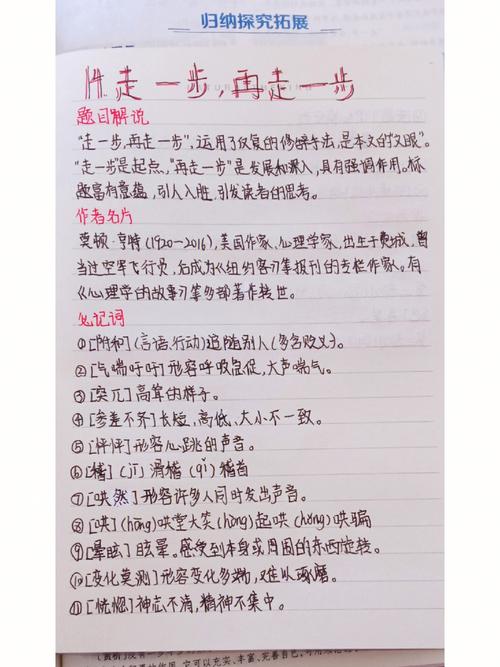 归纳探究拓展
14.走一步,再走一步
题目解说
“走一步,再走一步”,运用了反复的修辞手法,是本文的“文眼”。
“走一步”是起点,“再走一步”是发展和深入,具有强调作用。标
题富有意蕴,引人入胜,引发读者的思考。
作者名片
莫顿·亨特(1920-2016),美国作家、心理学家,出生于费城,曾
当过空军飞行员,后成为《纽约客》等报刊的专栏作家。有
《心理学的故事》等多部著作传世。
必记词
①[附和](言语、行动)追随别人(多含贬义)。
②[气喘吁吁]形容呼吸急促,大声喘气。
③[突兀]高耸的样子。
④[参差不齐]长短,高低、大小不一致。
⑤[怦怦]形容心跳的声音。
⑥[稽](jī)滑稽(qǐ)稽首
⑦[哄然]形容许多人同时发出声音。
⑧[哄](hōng)哄堂大笑(hòng)起哄(hǒng)哄骗
⑨[晕眩]眩晕。感受到本身或周围的东西旋转。
⑩[变化莫测]形容变化多端,难以琢磨。
⑪[恍惚]神志不清,精神不集中。